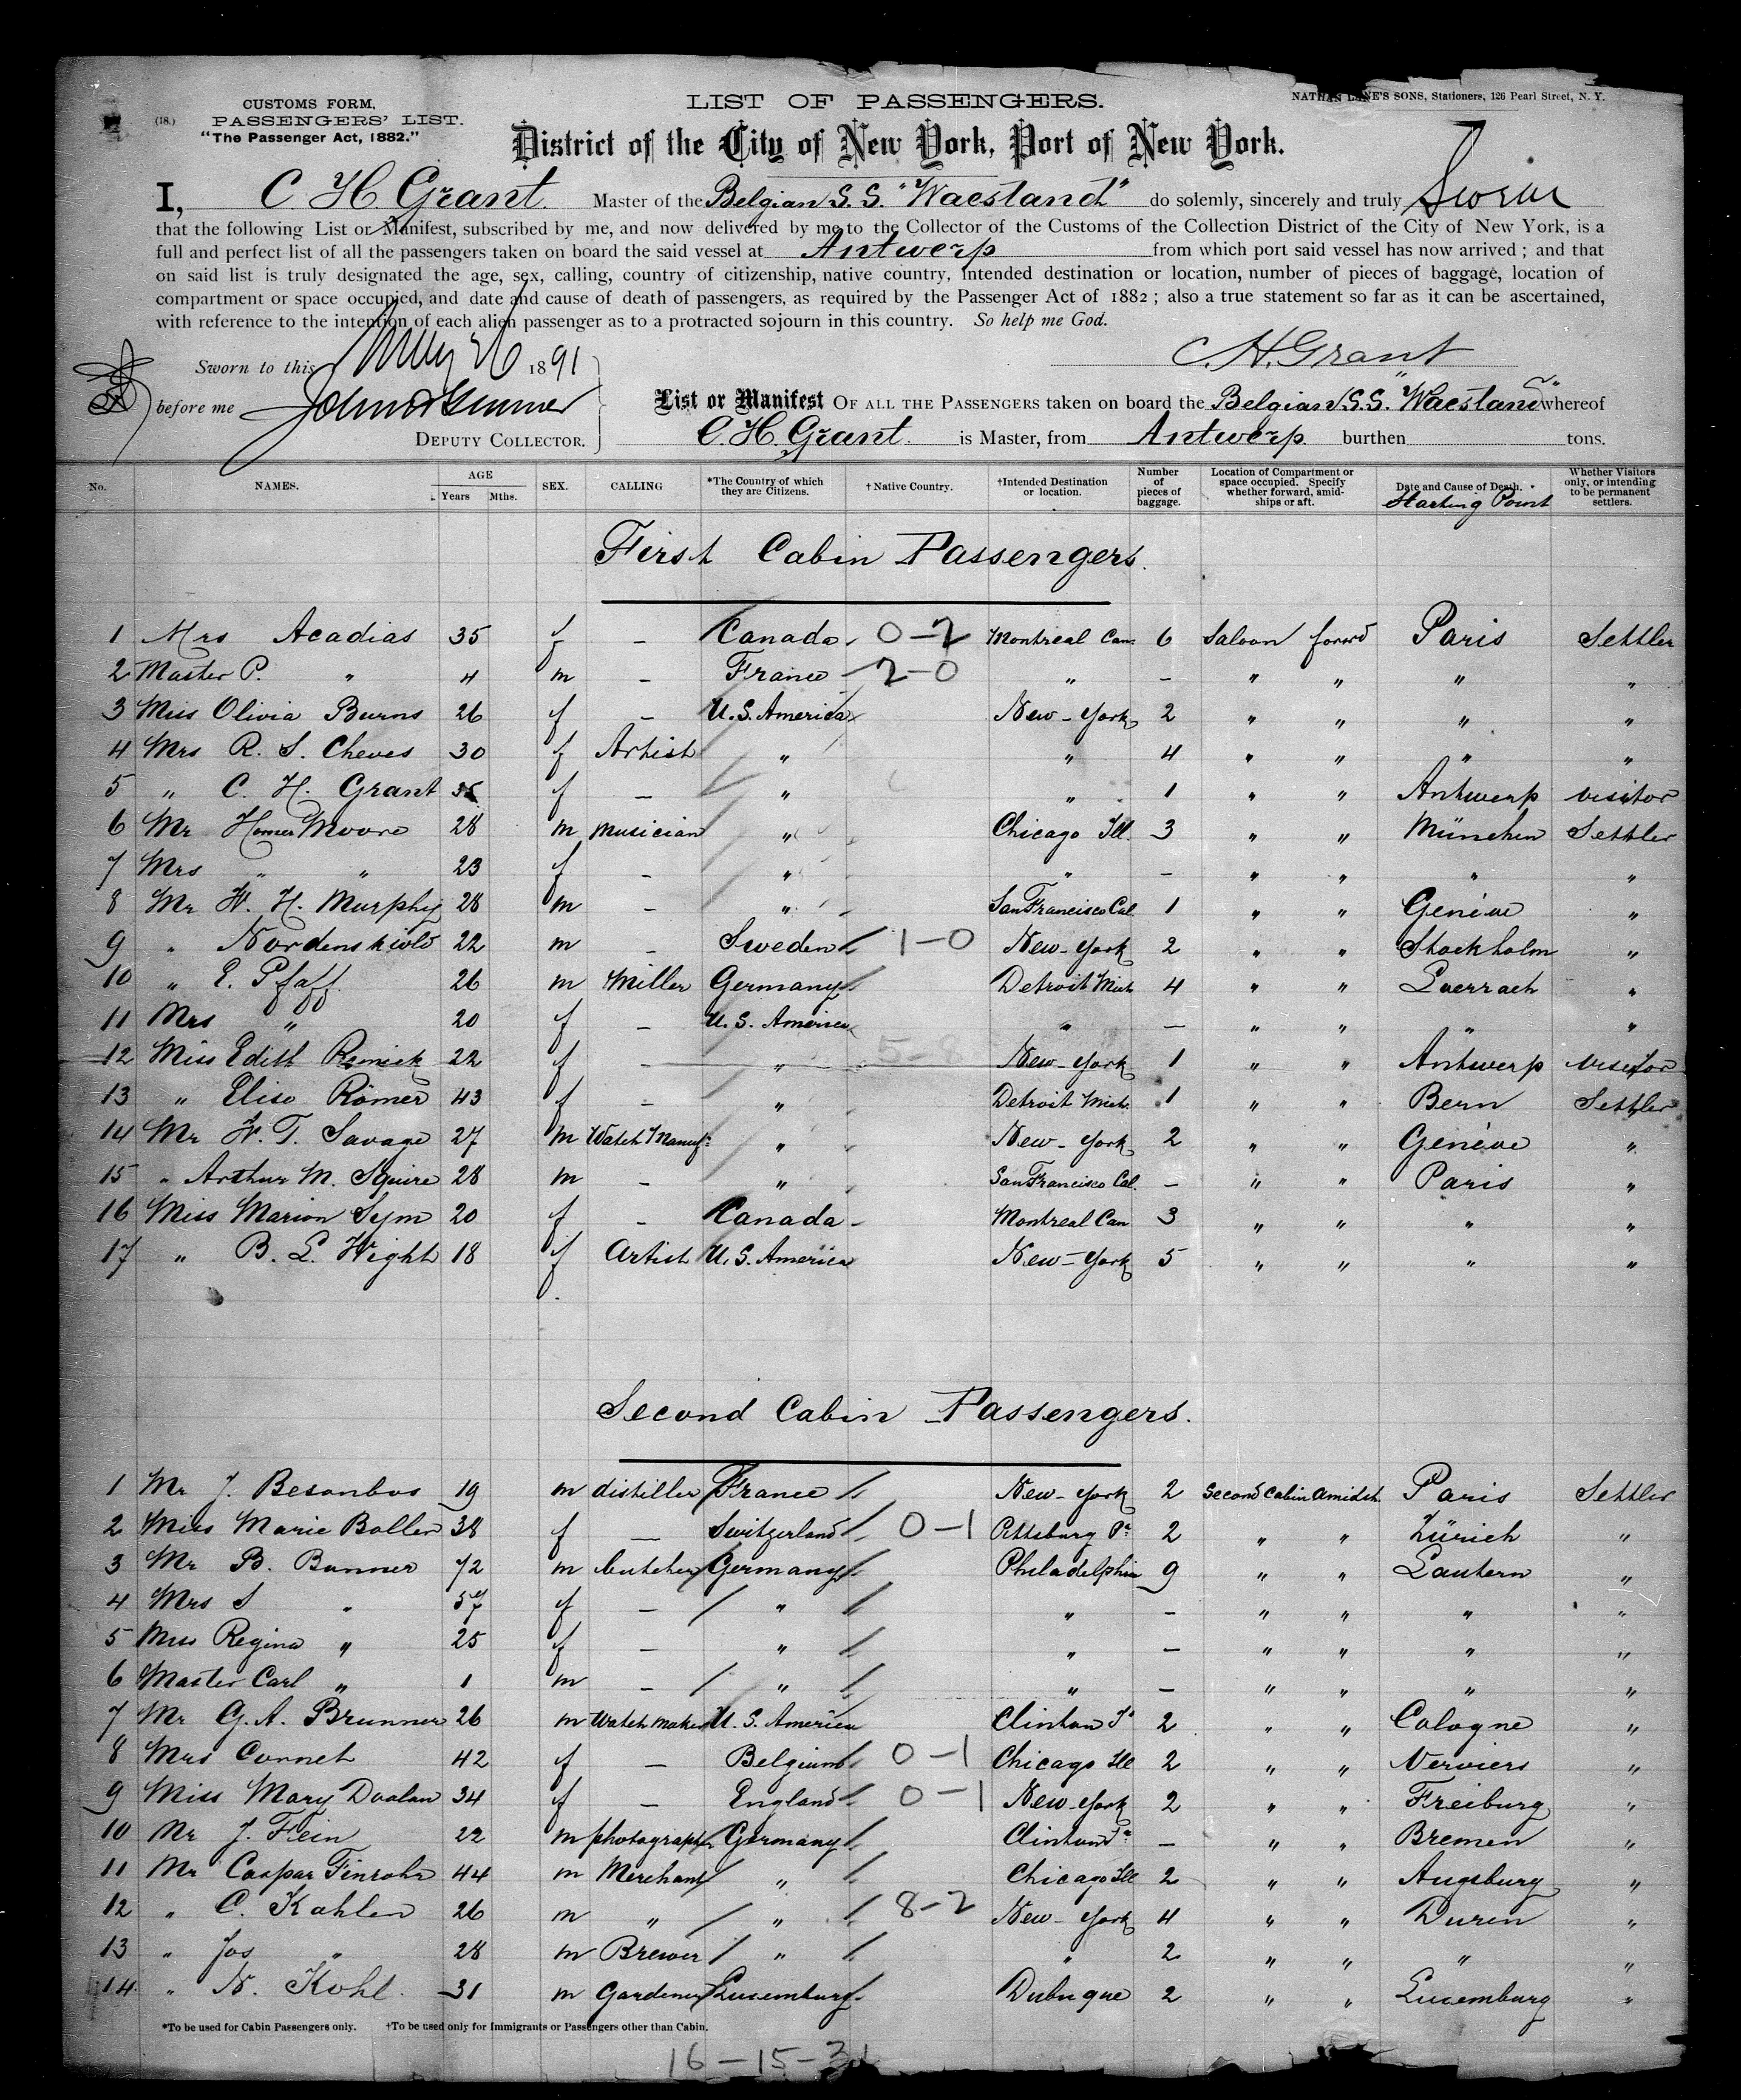 CUSTOMS FORM.
(18.) PASSENGERS' LIST.
"The Passenger Act, 1882."
LIST OF PASSENGERS.
NATHAN LANE'S SONS, Stationers, 126 Pearl Street, N. Y.
District of the City of New York, Port of New York.
I, C. H. Grant. Master of the Belgian S. S. "Waesland" do solemly, sincerely and truly Swear
that the following List or Manifest, subscribed by me, and now delivered by me to the Collector of the Customs of the Collection District of the City of New York, is a
full and perfect list of all the passengers taken on board the said vessel at Antwerp from which port said vessel has now arrived ; and that
on said list is truly designated the age, sex, calling, country of citizenship, native country, intended destination or location, number of pieces of baggage, location of
compartment or space occupied, and date and cause of death of passengers, as required by the Passenger Act of 1882 ; also a true statement so far as it can be ascertained,
with reference to the intention of each alien passenger as to a protracted sojourn in this country. So help me God.
Sworn to this May 26 1891
C. H. Grant
before me
DEPUTY COLLECTOR.
List or Manifest OF ALL THE PASSENGERS taken on board the Belgian S.S. "Waesland" whereof
C. H. Grant. is Master, from Antwerp burthen tons.
No. NAMES. AGE Years Mths. SEX. CALLING *The Country of which they are Citizens. † Native Country. †Intended Destination or location. Number of pieces of baggage. Location of Compartment or space occupied. Specify whether forward, amidships or aft. Date and Cause of Death. Starting Point Whether Visitors only, or intending to be permanent settlers.
First Cabin Passengers.
1 Mrs Acadias 35 f – Canada 0–2 Montreal Can. 6 Saloon forwd Paris Settler
2 Master P. " 4 m – France 2–0 " – " " " "
3 Miss Olivia Burns 26 f – U.S. America New-York 2 " " " "
4 Mrs R. S. Cheves 30 f Artist " " 4 " " " "
5 " C. H. Grant 35 f – " " 1 " " Antwerp visitor
6 Mr Homer Moore 28 m musician " Chicago Ill. 3 " " München Settler
7 Mrs " " 23 f – " " – " " " "
8 Mr W. H. Murphy 28 m – " San Francisco Cal. 1 " " Genève "
9 " Nordenskiold 22 m – Sweden 1–0 New-York 2 " " Stockholm "
10 " E. Pfaff. 26 m Miller Germany Detroit Mich 4 " " Loerrach "
11 Mrs " 20 f – U. S. America " – " " " "
12 Miss Edith Remick 22 f – " 5–8 New-York 1 " " Antwerp visitor
13 " Elise Römer 43 f – " Detroit Mich. 1 " " Bern Settler
14 Mr W. T. Savage 27 m Watch Manuf: " New-York 2 " " Genève "
15 " Arthur M. Squire 28 m – " San Francisco Cal. – " " Paris "
16 Miss Marion Sym 20 f – Canada Montreal Can 3 " " " "
17 " B. L. Wight 18 f Artist U. S. America New-York 5 " " " "
Second Cabin Passengers.
1 Mr J. Besonbos 19 m distiller France New-York 2 Second Cabin amidsh. Paris Settler
2 Miss Marie Boller 38 f – Switzerland 0–1 Pittsburg Pa 2 " " Zürich "
3 Mr B. Bonner 72 m butcher Germany Philadelphia 9 " " Lautern "
4 Mrs S " 57 f – " " – " " " "
5 Miss Regina " 25 f – " " – " " " "
6 Master Carl " 1 m – " " – " " " "
7 Mr G. A. Brunner 26 m Watch maker U. S. America Clinton 2 " " Cologne "
8 Mrs Cornet 42 f – Belgium 0–1 Chicago Ill 2 " " Verviers "
9 Miss Mary Doolan 34 f – England 0–1 New-York 2 " " Freiburg "
10 Mr J. Fein 22 m photograph Germany Clinton – " " Bremen "
11 Mr Caspar Finrohr 44 m Merchant " Chicago Ill 2 " " Augsburg "
12 " C. Kahlen 26 m " " 8–2 New-York 4 " " Duren "
13 " Jos " 28 m Brewer " " 2 " " " "
14. " N. Kohl. 31 m Gardener Luxemburg Dubuque 2 " " Luxemburg "
*To be used for Cabin Passengers only. †To be used only for Immigrants or Passengers other than Cabin.
16–15–31